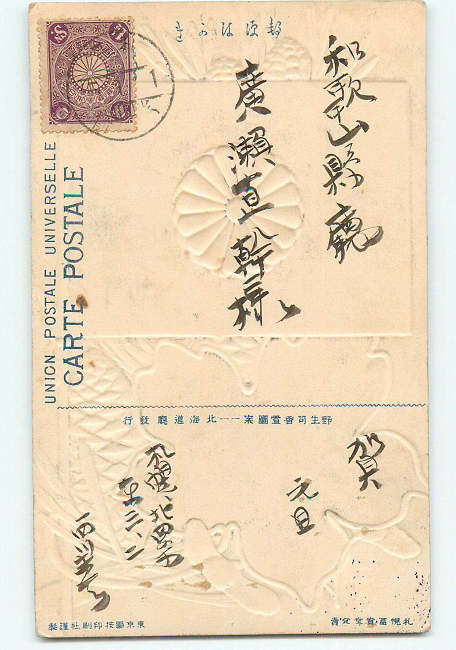 郵便はかき
和歌山縣廳
廣瀨直幹様
UNION POSTALE UNIVERSELLE
CARTE POSTALE
野生司香雪圖案――北海道廳發行
賀
元旦
札幌、北四
東三、二
東京圖按印刷社謹製